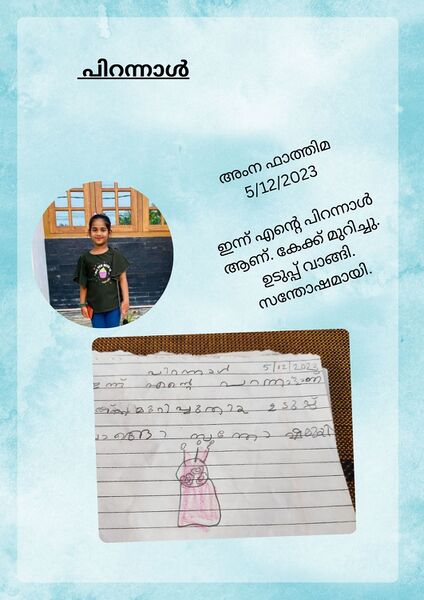 പിറന്നാൾ
അംന ഫാത്തിമ
5/12/2023
ഇന്ന് എന്റെ പിറന്നാൾ
ആണ്. കേക്ക് മുറിച്ചു.
ഉടുപ്പ് വാങ്ങി.
സന്തോഷമായി.
പിറന്നാൾ 5/12/2023
എന്റെ
ഉടുപ്പ്